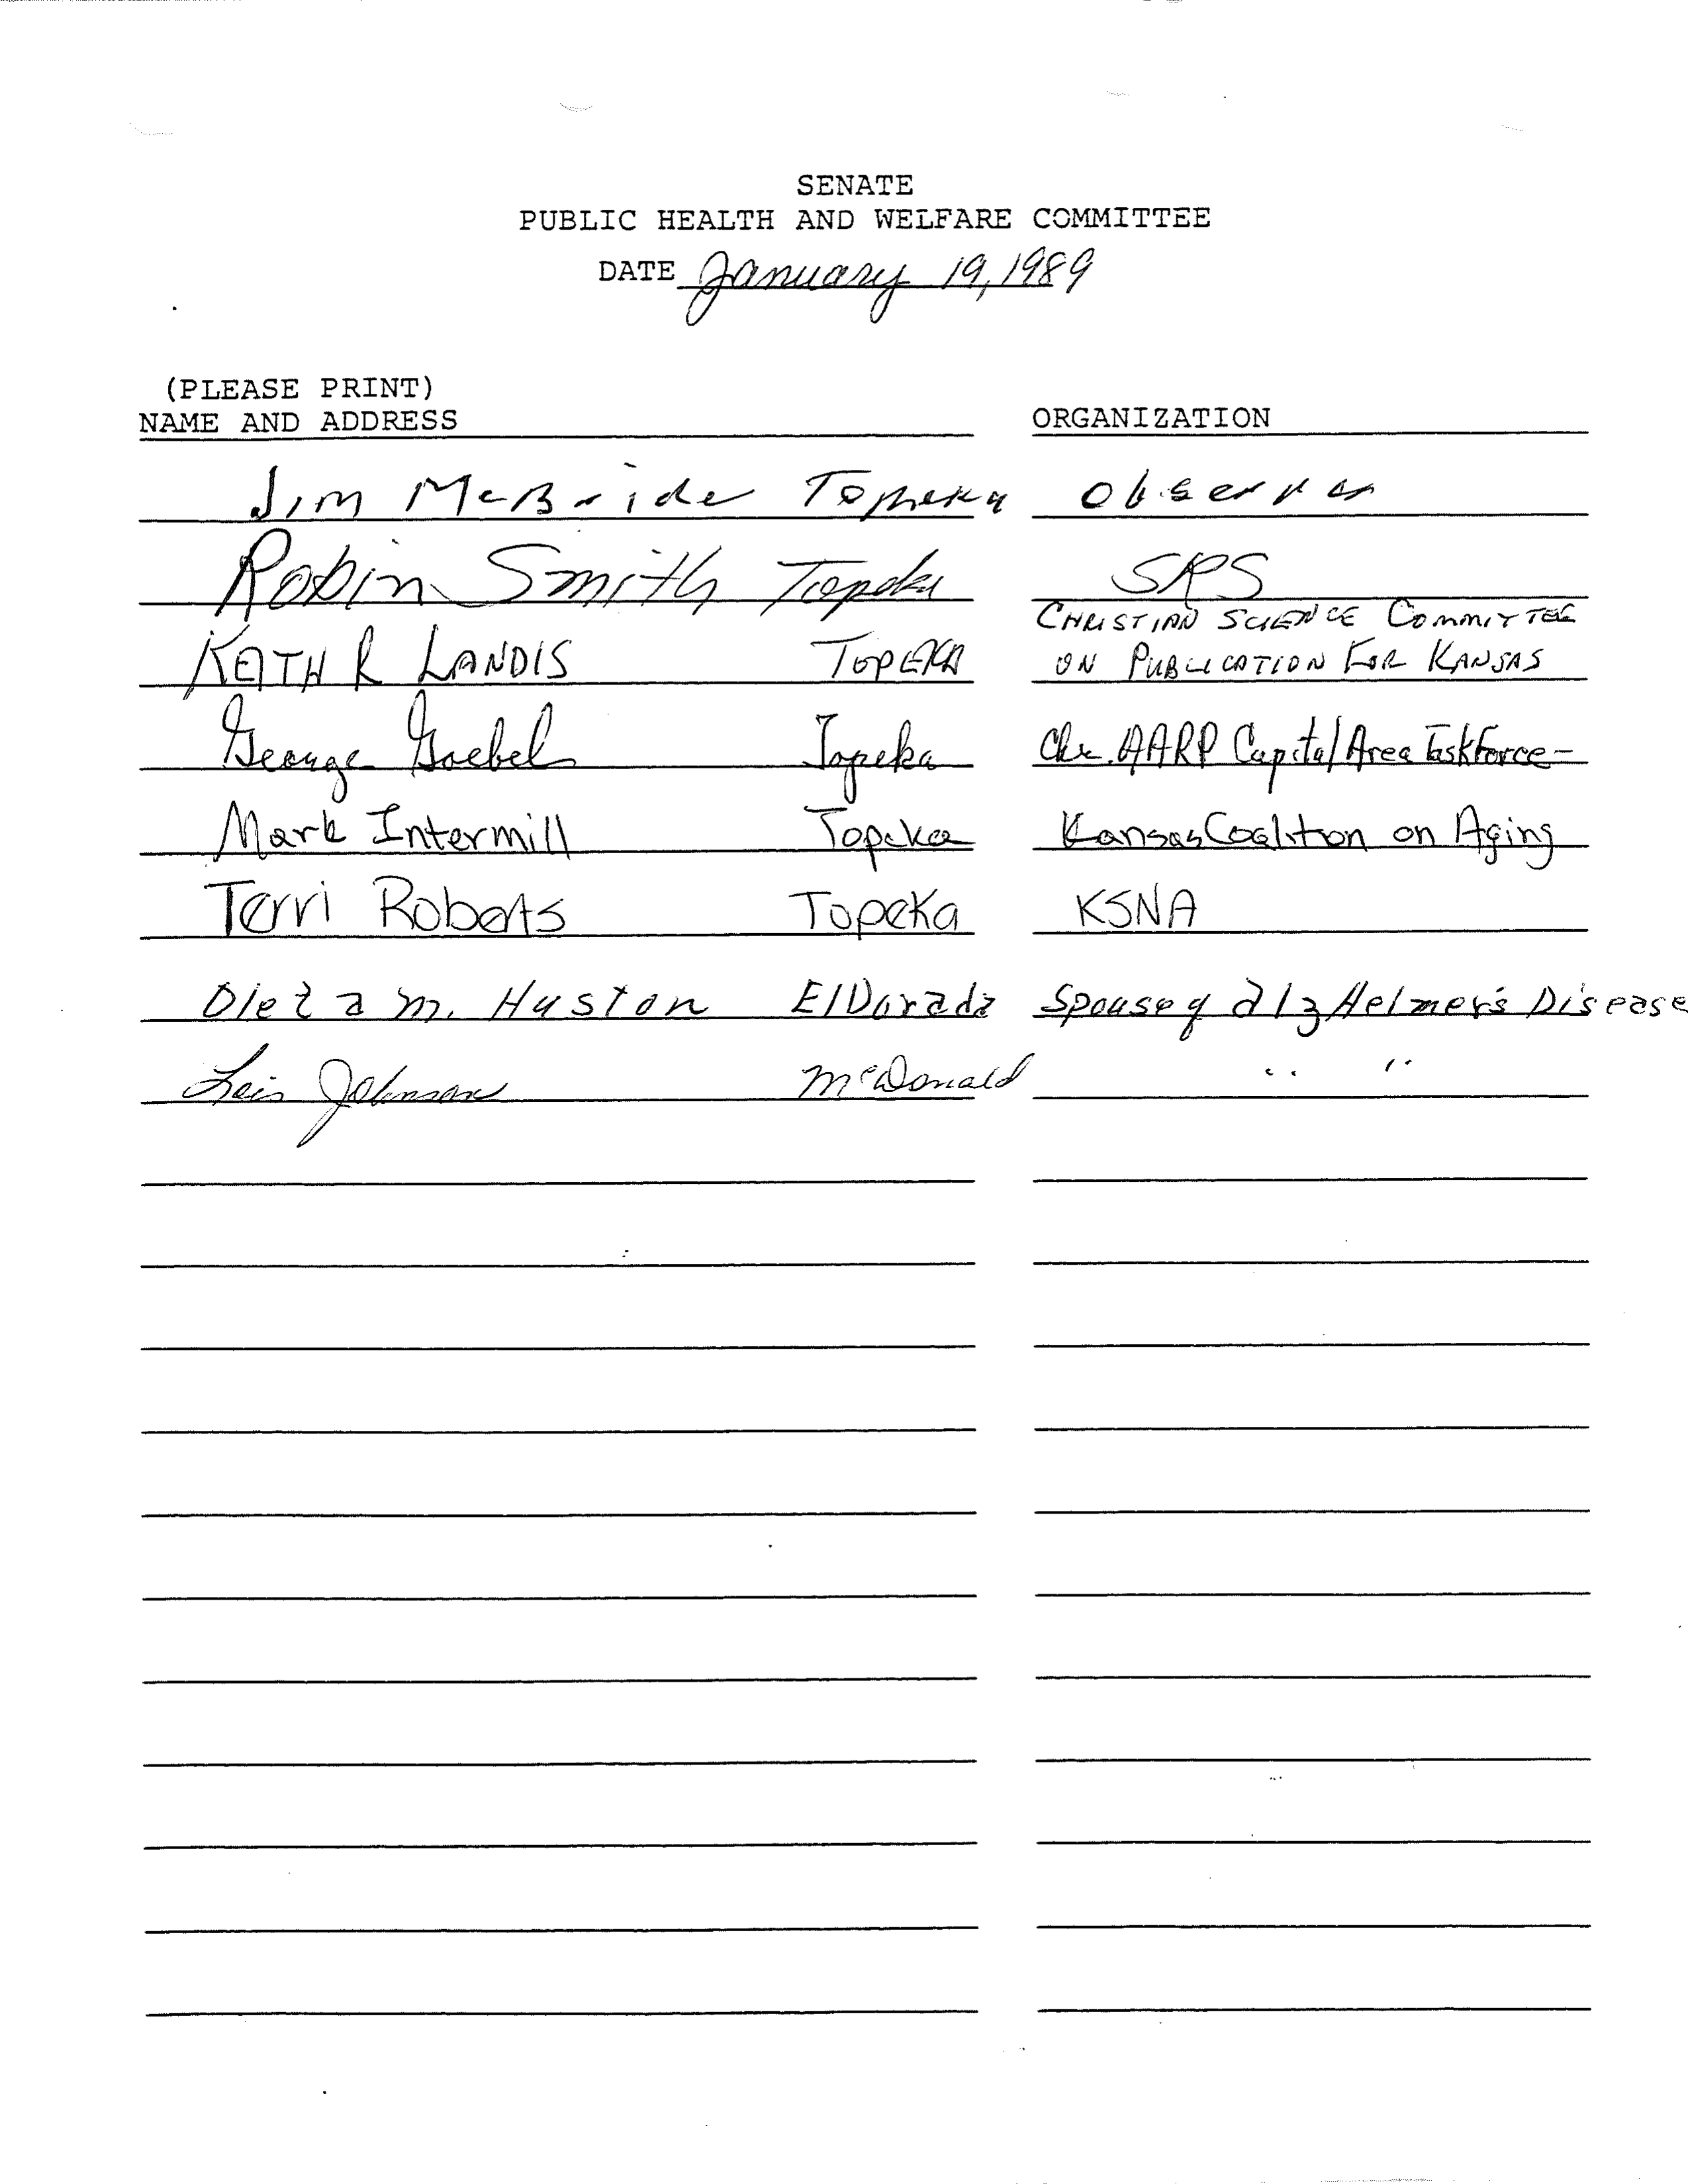 SENATE
PUBLIC HEALTH AND WELFARE COMMITTEE
DATE January 19, 1989
(PLEASE PRINT)
NAME AND ADDRESS ORGANIZATION
Jim McBride Topeka Observer
Robin Smith Topeka SRS
CHRISTIAN SCIENCE COMMITTEE
KEITH R LANDIS TOPEKA ON PUBLICATION FOR KANSAS
George Goebel Topeka Chr. AARP Capital Area Taskforce-
Mark Intermill Topeka Kansas Coalition on Aging
Terri Roberts Topeka KSNA
Oleta M. Huston ElDorado Spouse of AlzHeimer's Disease
Lois Johnson McDonald " "